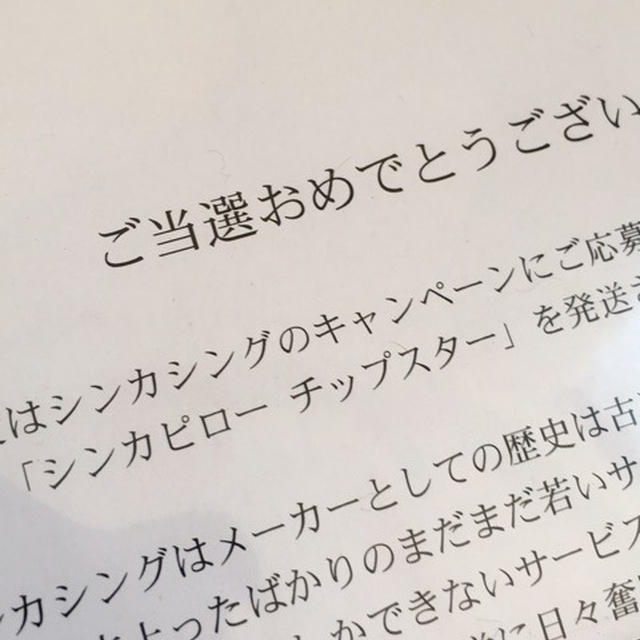 ご当選おめでとうござい
はシンカシングのキャンペーンにご応募
「シンカピロー チップスター」を発送
カシングはメーカーとしての歴史は古
ったばかりのまだまだ若いサ
かできないサービス
に日々奮